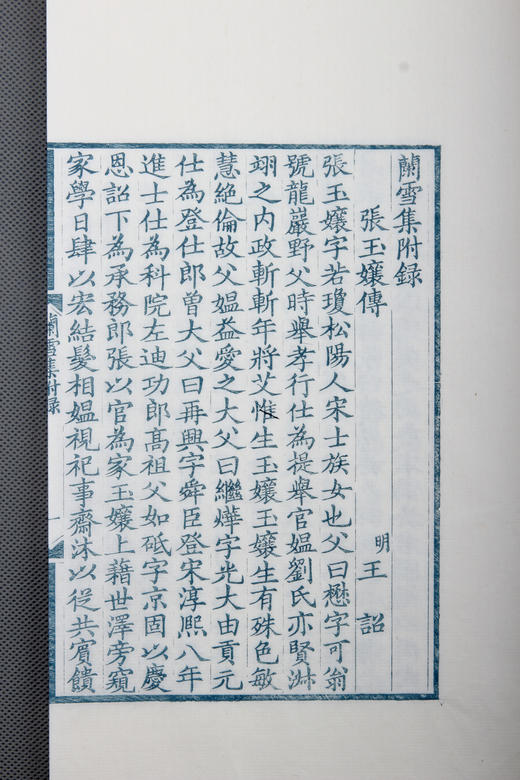 蘭雪集附録
張玉孃傳
明 王 詔
張玉孃字若瓊松陽人宋士族女也父曰懋字可翁
號龍巖野父時舉孝行仕為提舉官媼劉氏亦賢淋
翊之内政斬斬年將艾惟生玉孃玉孃生有殊色敏
慧絶倫故父媼益愛之大父曰繼燁字光大由貢元
仕為登仕郎曽大父曰再興字舜臣登宋淳熙八年
進士仕為科院左迪功郎髙祖父如砥字京固以慶
恩詔下為承務郎張以官為家玉孃上藉世澤旁窺
家學日肆以宏結髮相媼視祀事齋沐以從共賓饋
蘭雪集附録
一